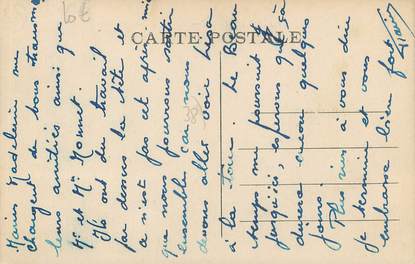 CARTE POSTALE
60€
Marius Madeleine me
chargent de vous transme
leurs amitiés ainsi que
Mr et Mme Monnet.
Ils ont du travail
par dessus la tête et
ce n'est pas cet après mi
que nous pourrons sortir
ensemble car nous
devons aller voir
à la Tour. Le Beau
temps me poursuit
jusqu'ici, espérons que ça
durera encore quelques
jours.
Plus rien à vous dire
je termine et vous
embrasse bien fort